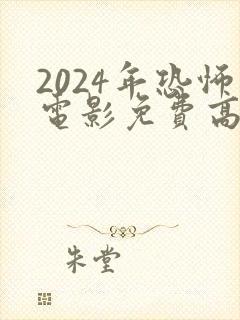 2024年恐怖
电影免费高
朱堂